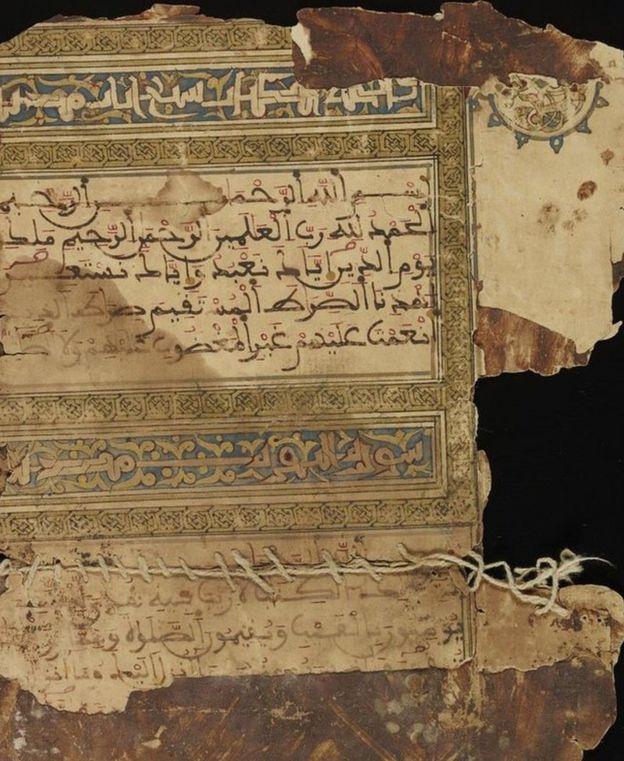 فاتحة الكتاب سبع ايات
بِسْمِ اللَّهِ الرَّحْمَنِ الرَّحِيمِ
الْحَمْدُ لِلَّهِ رَبِّ الْعَلَمِينَ الرَّحْمَنِ الرَّحِيمِ مَلِكِ
يَوْمِ الدِّينِ إِيَّاكَ نَعْبُدُ وَإِيَّاكَ نَسْتَعِينُ
اهْدِنَا الصِّرَاطَ الْمُسْتَقِيمَ صِرَاطَ الَّذِينَ
أَنْعَمْتَ عَلَيْهِمْ غَيْرِ الْمَغْضُوبِ عَلَيْهِمْ وَلَا
سورة البقرة
الكتاب لا ريب فيه هدى
يومنون بالغيب ويقيمون الصلوة ومما
انزل اليك وما انزل